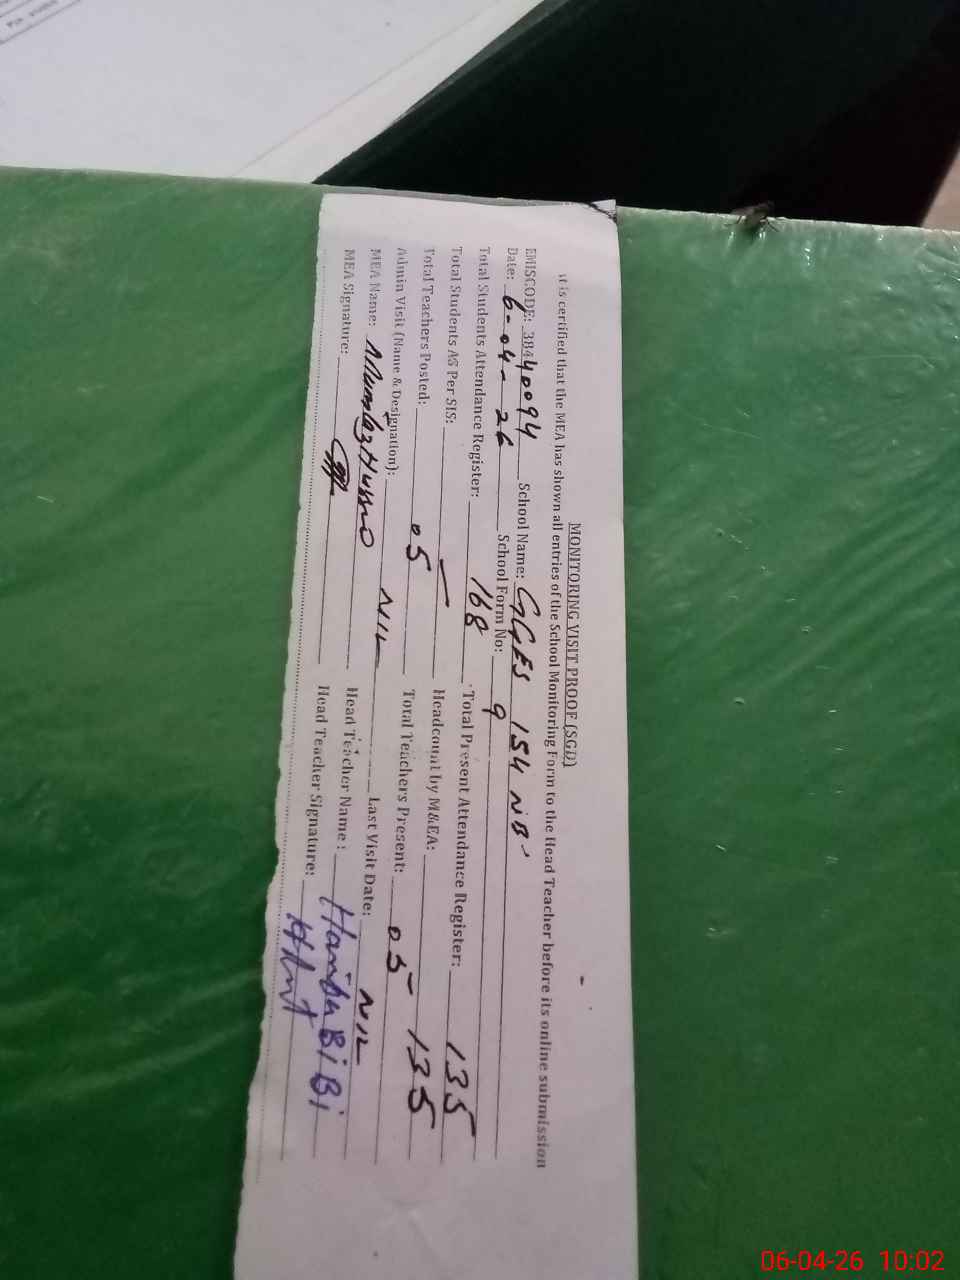 MONITORING VISIT PROOF (SGD)
It is certified that the MEA has shown all entries of the School Monitoring Form to the Head Teacher before its online submission
EMISCODE: 38440094 School Name: GGES 154 NB
Date: 6-04-26 School Form No: 9
Total Students Attendance Register: 168 Total Present Attendance Register: 135
Total Students AS Per SIS: — Headcount by M&EA: 135
Total Teachers Posted: 05 Total Teachers Present: 05
Admin Visit (Name & Designation): NIL Last Visit Date: NIL
MEA Name: Head Teacher Name: BiBi
MEA Signature: Head Teacher Signature:
06-04-26 10:02